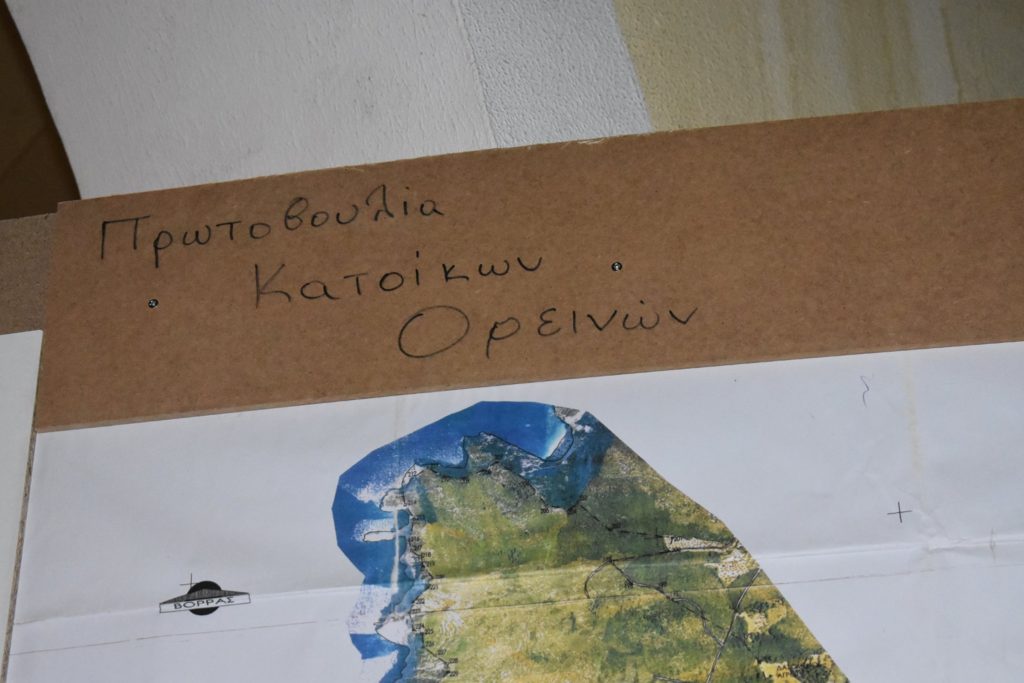 Πρωτοβουλία
Κατοίκων
Ορεινών
ΒΟΡΡΑΣ